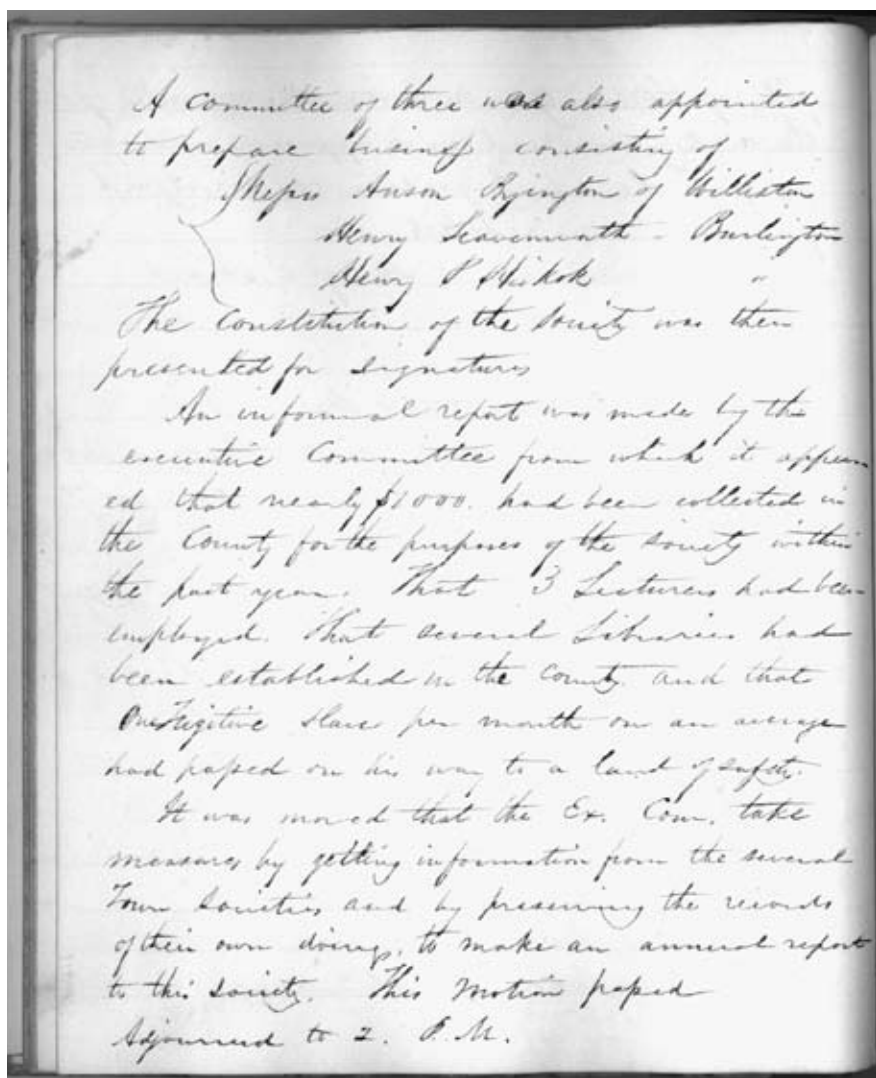 A committee of three was also appointed
to prepare business consisting of
Messrs Anson Byington of Williston
Henry Leavenworth - Burlington
Henry P Hickok "
The Constitution of the Society was then
presented for signatures
An informal report was made by the
executive Committee from which it appear
ed that nearly $1000. had been collected in
the County for the purposes of the society within
the past year. That 3 Lecturers had been
employed. That several Libraries had
been established in the County and that
One Fugitive slave per month on an average
had passed on his way to a land of safety.
It was moved that the Ex. Com. take
measures by getting information from the several
Town Societies and by preserving the records
of their own doings, to make an annual report
to this Society. This Motion passed
Adjourned to 2. P.M.